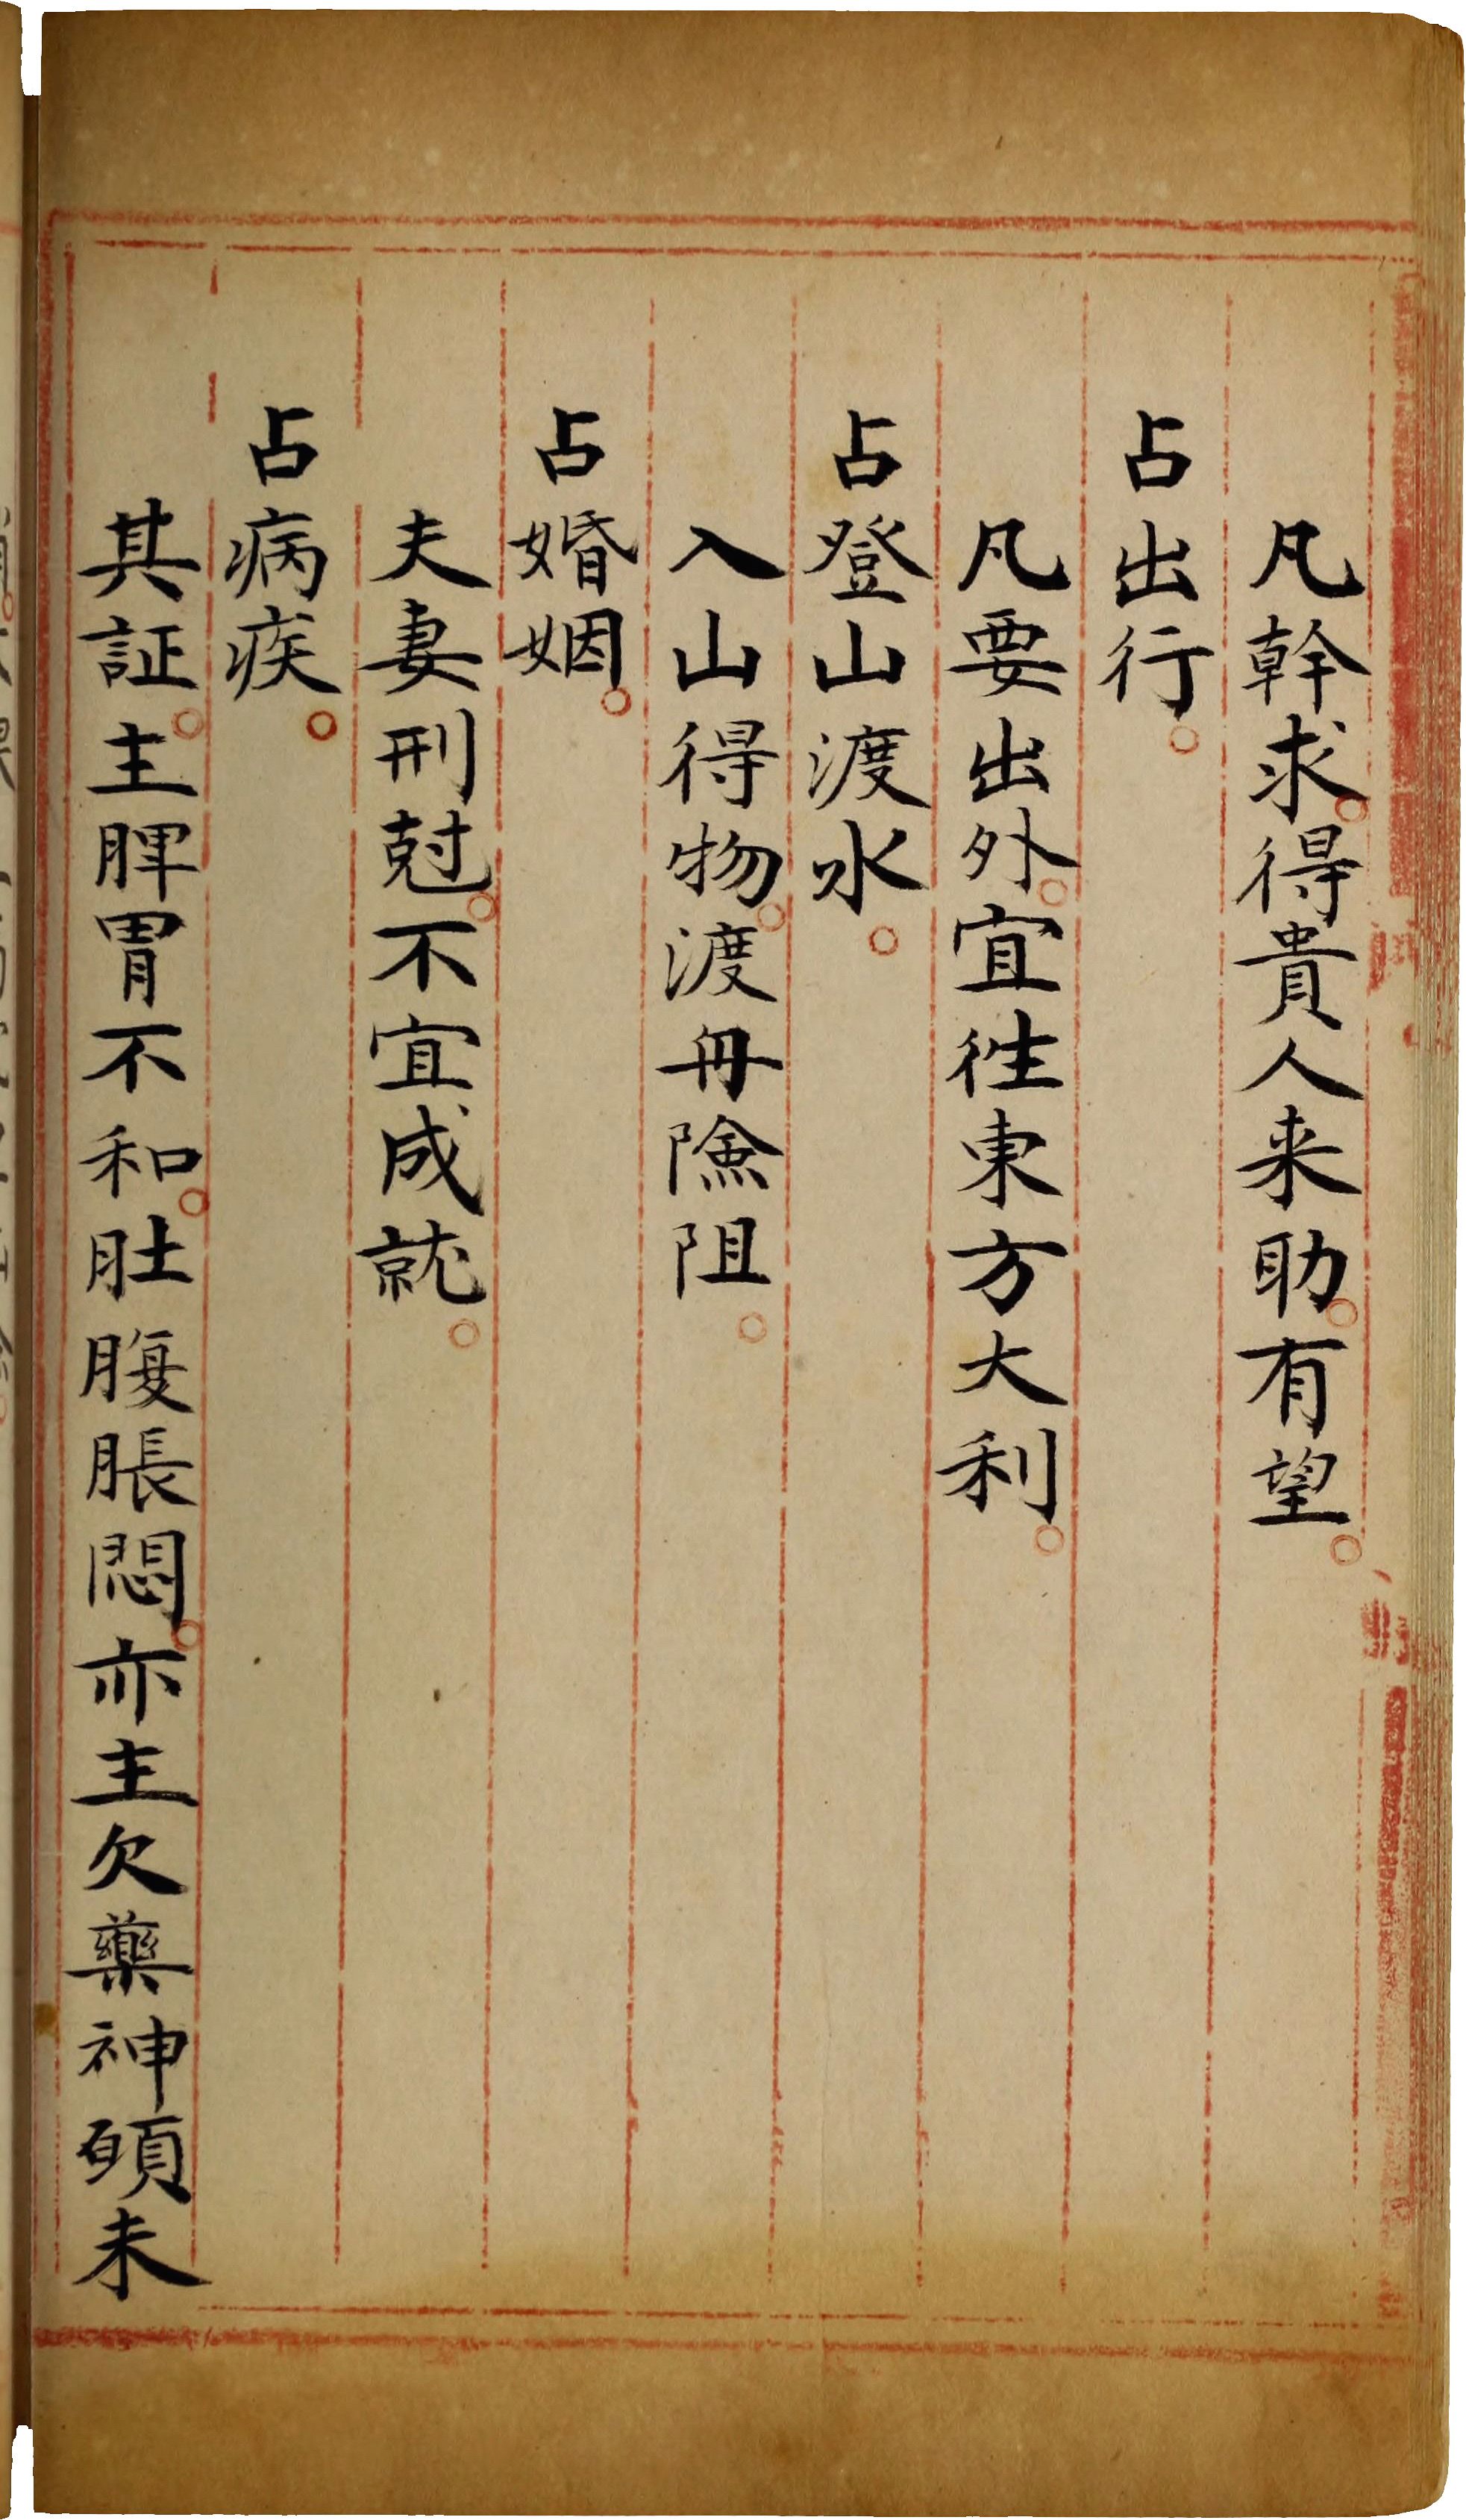 凡幹求。得貴人来助。有望。
占出行。
凡要出外。宜徃東方大利。
占登山渡水。
入山得物。渡毋險阻。
占婚姻。
夫妻刑尅。不宜成就。
占病疾。
其証。主脾胃不和。肚腹脹悶。亦主欠藥神碩未